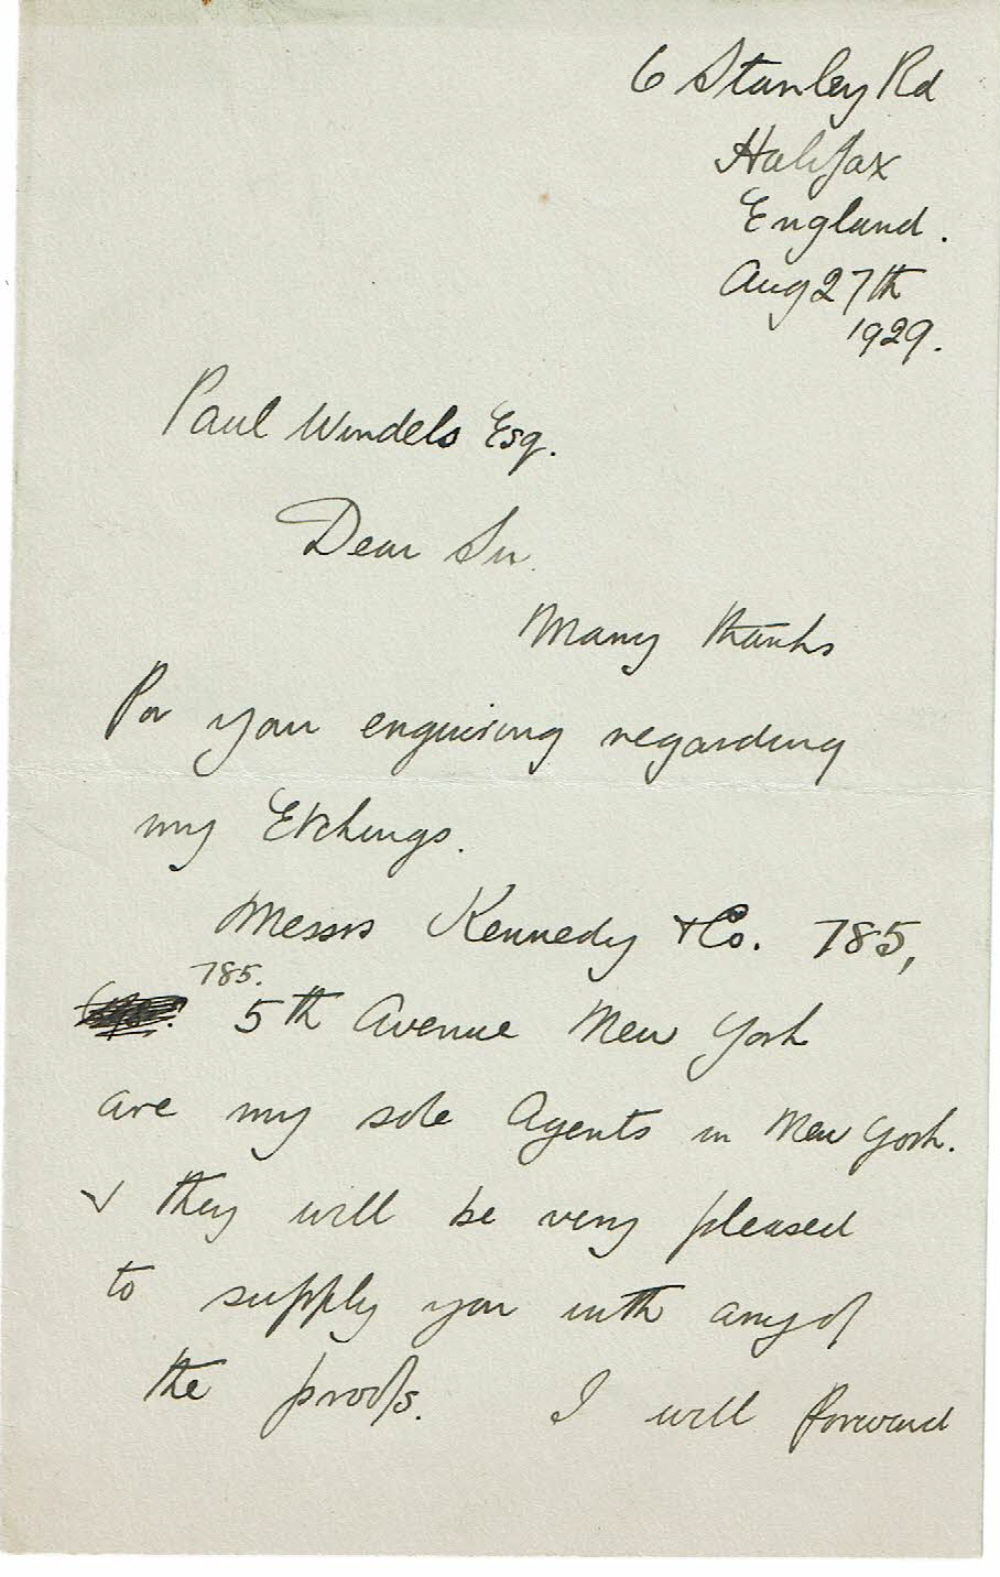 6 Stanley Rd
Halifax
England.
Aug 27th
1929.
Paul Windels Esq.
Dear Sir.
Many thanks
for your enquiring regarding
my Etchings.
Messrs Kennedy & Co. 785,
785.
5th Avenue New York
are my sole Agents in New York.
& they will be very pleased
to supply you with any of
the proofs. I will forward